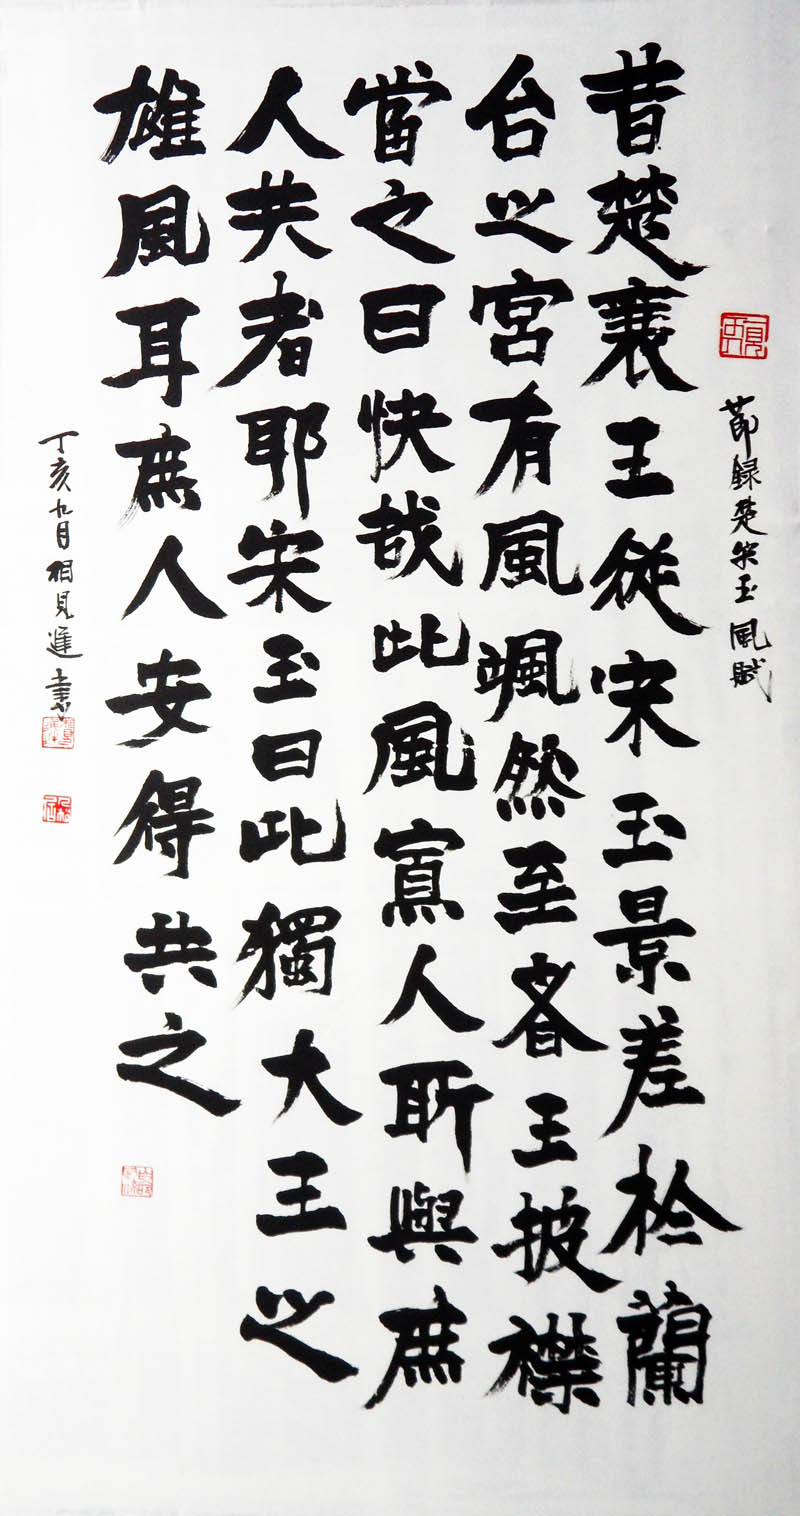 節錄楚宋玉風賦
昔楚襄王從宋玉景差於蘭
台之宮有風颯然至者王披襟
當之曰快哉此風寡人所與庶
人共者耶宋玉曰此獨大王之
雄風耳庶人安得共之
丁亥九月相見進書